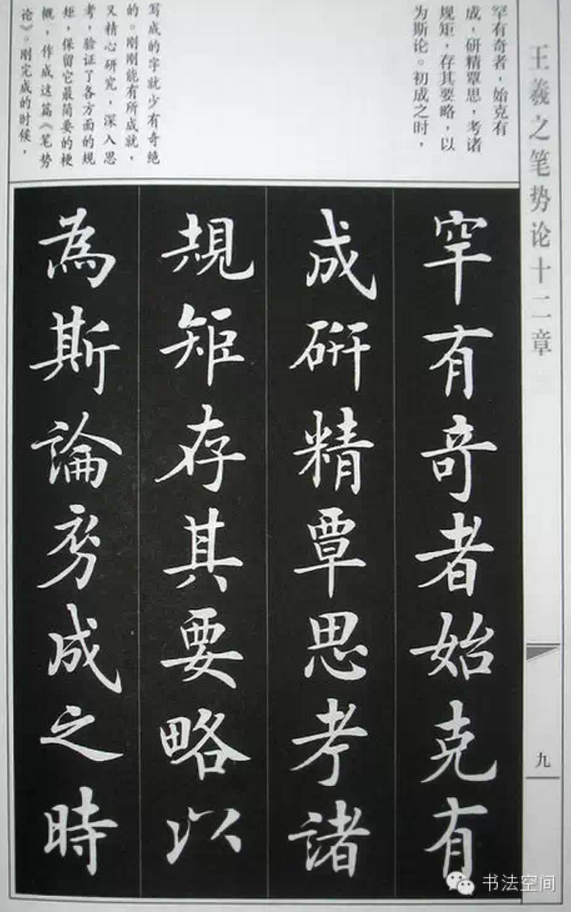 王羲之笔势论十二章
九
罕有奇者，始克有
成，研精覃思，考诸
规矩，存其要略，以
为斯论。初成之时，
写成的字就少有奇绝
的。刚刚能有所成就，
又精心研究，深入思
考，验证了各方面的规
矩，保留它最简要的梗
概，作成这篇《笔势
论》。刚完成的时候，
罕有奇者始克有
成研精覃思考諸
規矩存其要略以
為斯論初成之時
书法空间